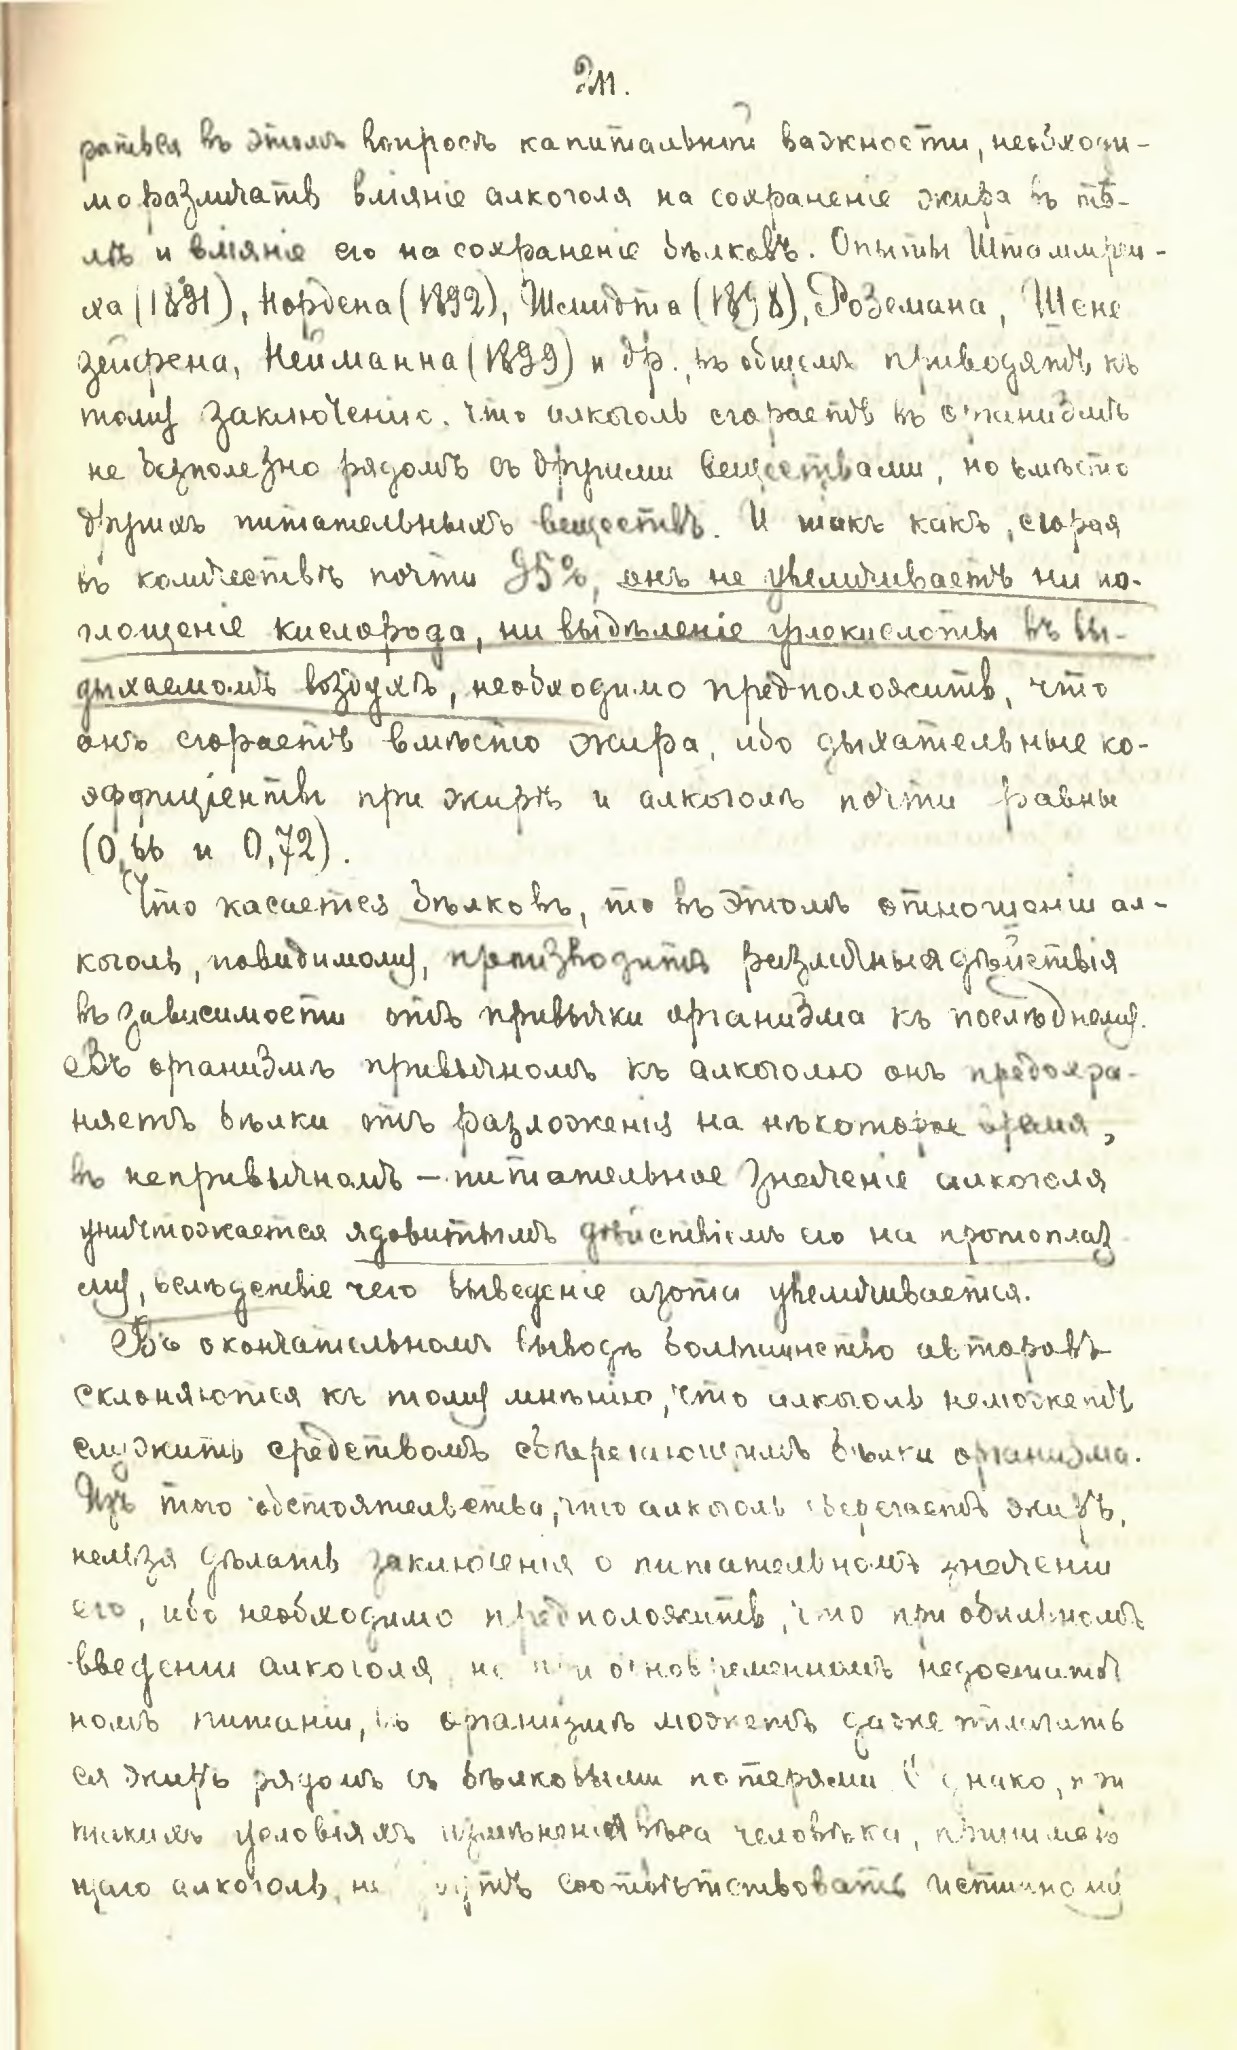 211.
раться въ этомъ вопросѣ капитальной важности, необходи-
мо различать вліяніе алкоголя на сохраненіе жира въ тѣ-
лѣ и вліяніе его на сохраненіе бѣлковъ. Опыты Штаммрей-
ха (1891), Нордена (1892), Шмидта (1898), Роземана, Шене
зейфена, Нейманна (1899) и др., въ общемъ приводятъ къ
тому заключенію, что алкоголь сгораетъ въ организмѣ
не безполезно рядомъ съ другими веществами, но вмѣсто
другихъ питательныхъ веществъ. И такъ какъ, сгорая
въ количествѣ почти 95%, онъ не увеличиваетъ ни по-
глощеніе кислорода, ни выдѣленіе углекислоты въ вы-
дыхаемомъ воздухѣ, необходимо предположить, что
онъ сгораетъ вмѣсто жира, ибо дыхательные ко-
эффиціенты при жирѣ и алкоголѣ почти равны
(0,66 и 0,72).
Что касается бѣлковъ, то въ этомъ отношеніи ал-
коголь, повидимому, производитъ различныя дѣйствія
въ зависимости отъ привычки организма къ послѣднему.
Въ организмѣ привычномъ къ алкоголю онъ предохра-
няетъ бѣлки отъ разложенія на нѣкоторое время,
въ непривычномъ — питательное значеніе алкоголя
уничтожается ядовитымъ дѣйствіемъ его на протоплаз
му, вслѣдствіе чего выведеніе азота увеличивается.
Въ окончательномъ выводѣ большинство авторовъ
склоняются къ тому мнѣнію, что алкоголь неможетъ
служить средствомъ сберегающимъ бѣлки организма.
Изъ того обстоятельства, что алкоголь сберегаетъ жиръ,
нельзя дѣлать заключенія о питательномъ значеніи
его, ибо необходимо предположить, что при обильномъ
введеніи алкоголя, но при одновременномъ недостаточ
номъ питаніи, въ организмѣ можетъ даже отлагать
ся жиръ рядомъ съ бѣлковыми потерями Однако, при
такихъ условіяхъ измѣненія вѣса человѣка, принимаю
щаго алкоголь, не будутъ соотвѣтствовать истинному